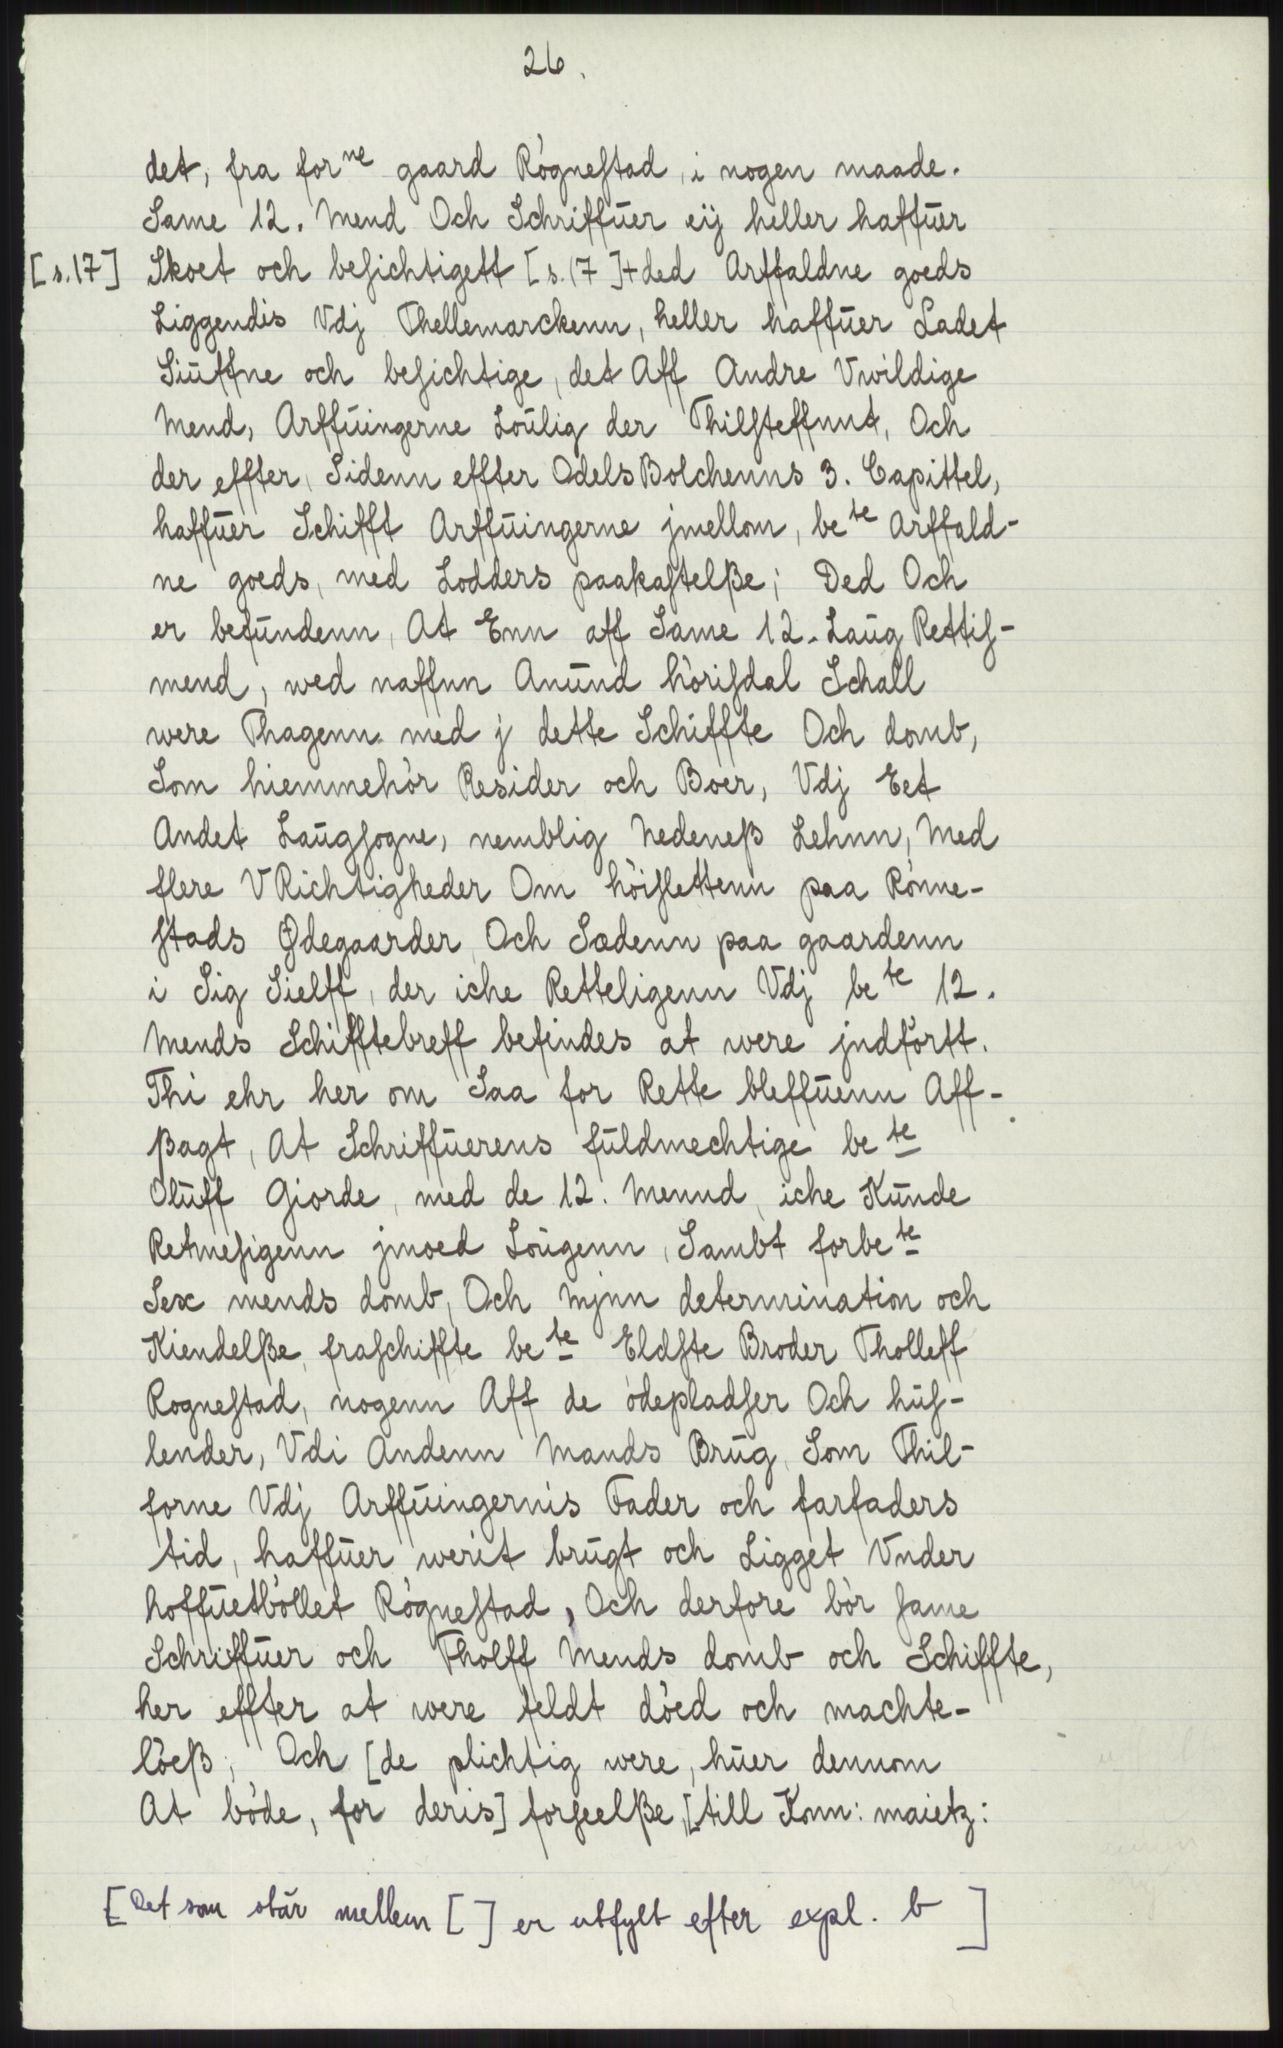 26.
det, fra for^ne gaard Rógnestad, i nogen maade.
Same 12. Mend Och Schriffuer eÿ heller haffuer
[s.17] Skoet och besichtigett [s.17]+ ded Arffaldne goeds
Liggendis Vdj Thellemarckenn, heller haffuer Ladet
Siuffne och besichtige, det Aff Andre Vwildige
Mend, Arffuingerne Loulig der Thilsteffnnt, Och
der effter, Sidenn effter OdelsBolchenns 3. Capittel,
haffuer Schifft Arffuingerne jmellom, be^te Arffald-
ne goeds, med Lodders paakastelße; Ded Och
er befundenn, At Enn aff Same 12. Laug Rettis-
mend, wed naffnn Anund hórisdal Schall
were Thagenn med j dette Schiffte Och domb,
Som hiemmehór Resider och Boer, Vdj Eet
Andet Laugsogne, nemblig Nedeneß Lehnn, Med
flere VRichtigheder Om hóislettenn paa Rónne-
stads Ødegaarder, Och Sædenn paa gaardenn
i Sig Sielff, der iche Retteligenn Vdj be^te 12.
Mends Schifftebreff befindes at were jndfórtt.
Thi ehr her om Saa for Rette bleffuenn Aff-
ßagt, At Schriffuerens fuldmechtige be^te
Oluff Giorde, med de 12. Mennd, iche Kunde
Retmesigenn jmoed Lougenn, Sambt forbe^te
Sex mends domb, Och Mjnn determination och
Kiendelße, fraschiffte be^te Eldste Broder Tholleff
Rognestad, nogenn Aff de ódepladser Och hus-
lender, Vdi Andenn Mands Brug, Som Thil-
forne Vdj Arffuingernis Fader och farfaders
tid, haffuer werit brugt och Ligget Vnder
hoffuetbóllet Rógnestad, Och derfore bór same
Schriffuer och Tholff Mends domb och Schiffte,
her effter at were feldt dóed och machte-
lóeß; Och [de plichtig were, huer dennom
At bóde, for deris] forseelße, [till Konn: maietz:
[Det som står mellem [ ] er utfylt efter expl. b ]